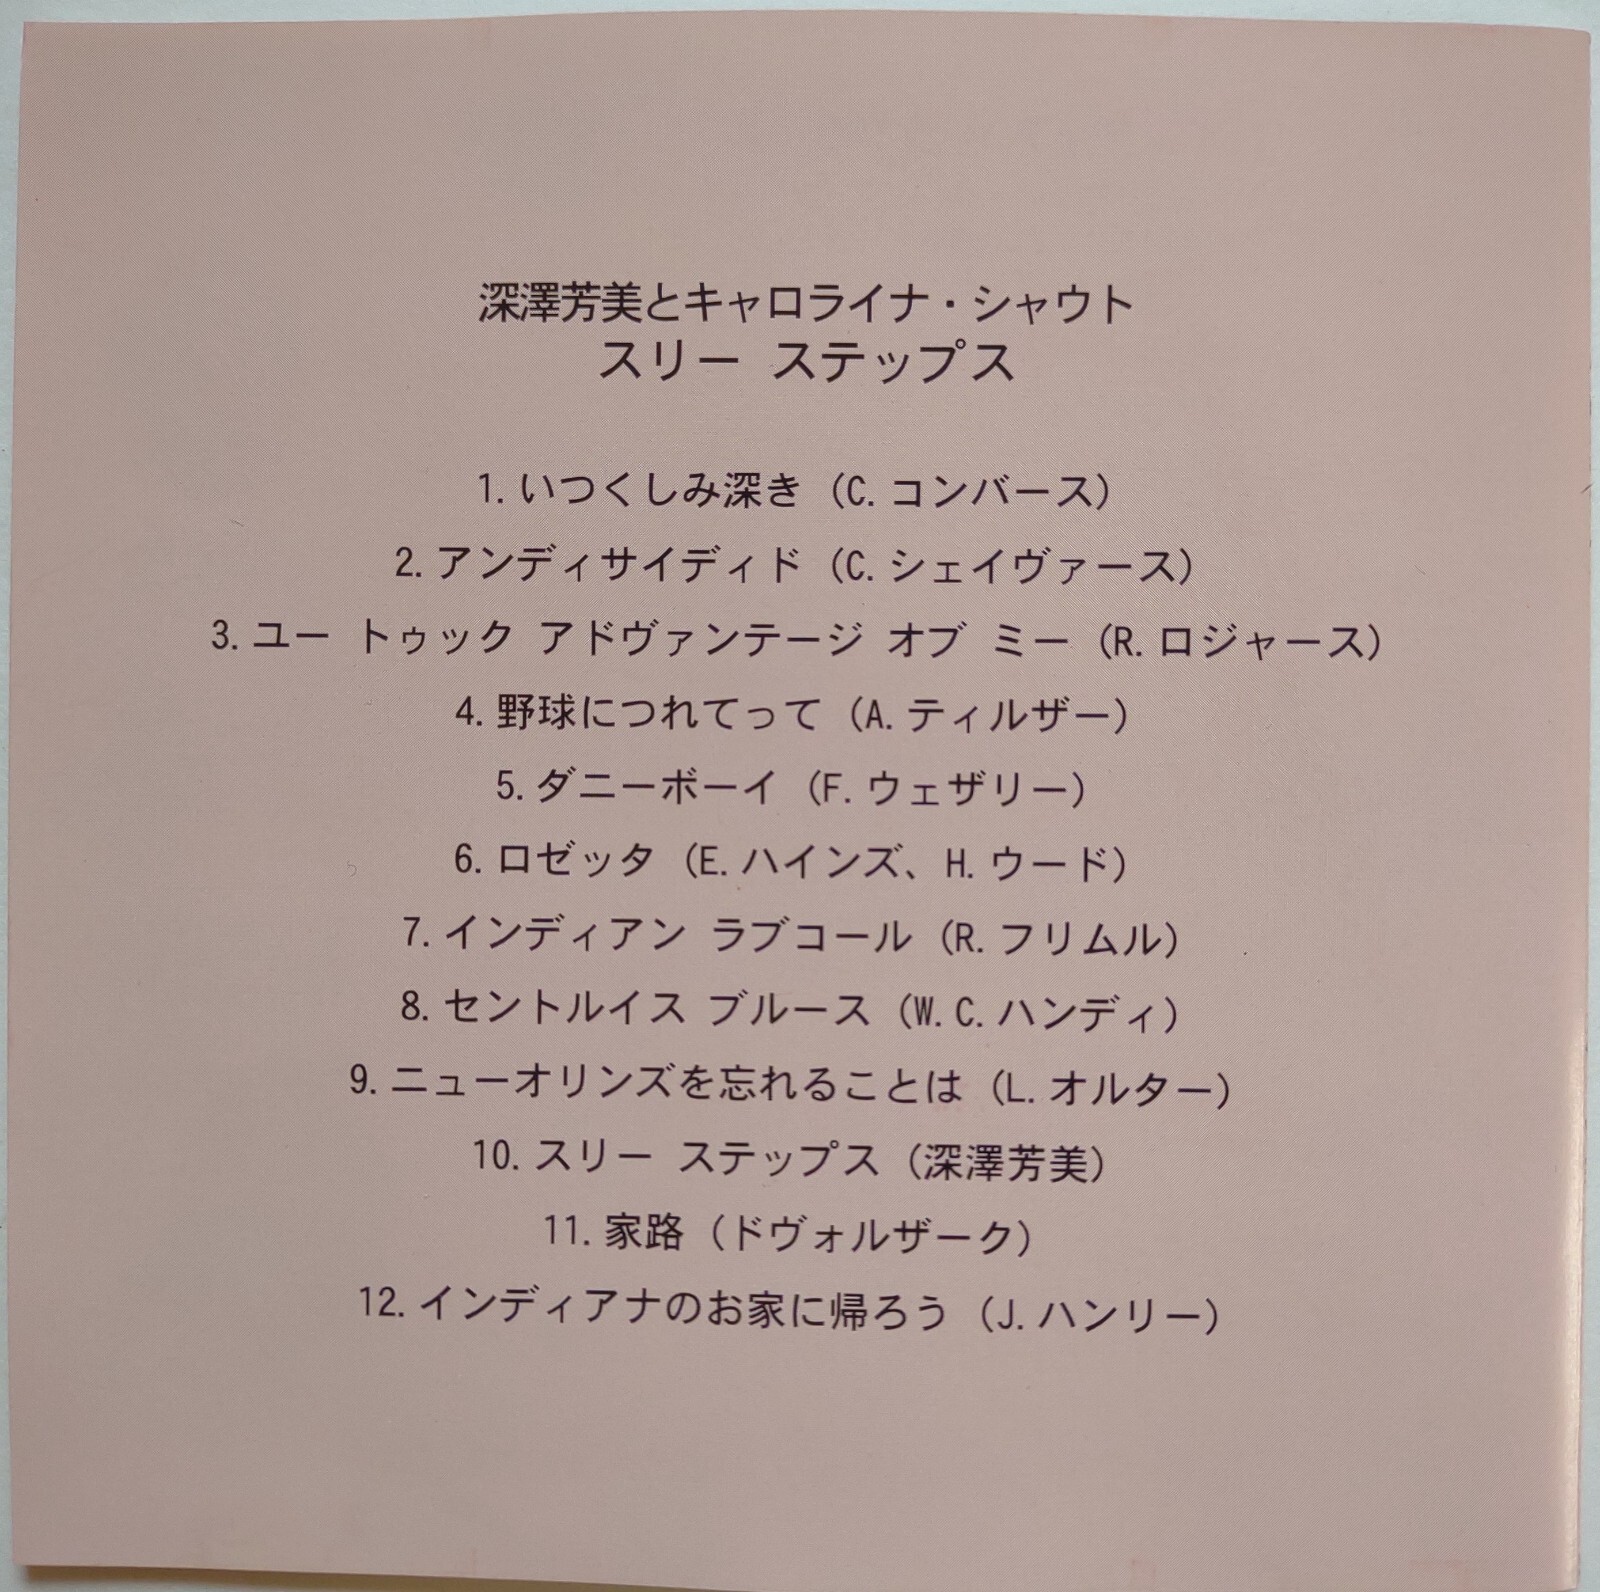 深澤芳美とキャロライナ・シャウト
スリー ステップス
1. いつくしみ深き (C. コンバース)
2. アンディサイディド (C. シェイヴァース)
3. ユー トゥック アドヴァンテージ オブ ミー (R. ロジャース)
4. 野球につれてって (A. ティルザー)
5. ダニーボーイ (F. ウェザリー)
6. ロゼッタ (E. ハインズ、H. ウード)
7. インディアン ラブコール (R. フリムル)
8. セントルイス ブルース (W. C. ハンディ)
9. ニューオリンズを忘れることは (L. オルター)
10. スリー ステップス (深澤芳美)
11. 家路 (ドヴォルザーク)
12. インディアナのお家に帰ろう (J. ハンリー)